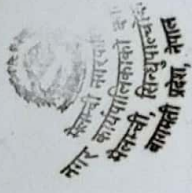 मेलम्ची नगरपालिका
नगर कार्यपालिकाको
मेलम्ची, सिन्धुपाल्चोक
बागमती प्रदेश, नेपाल